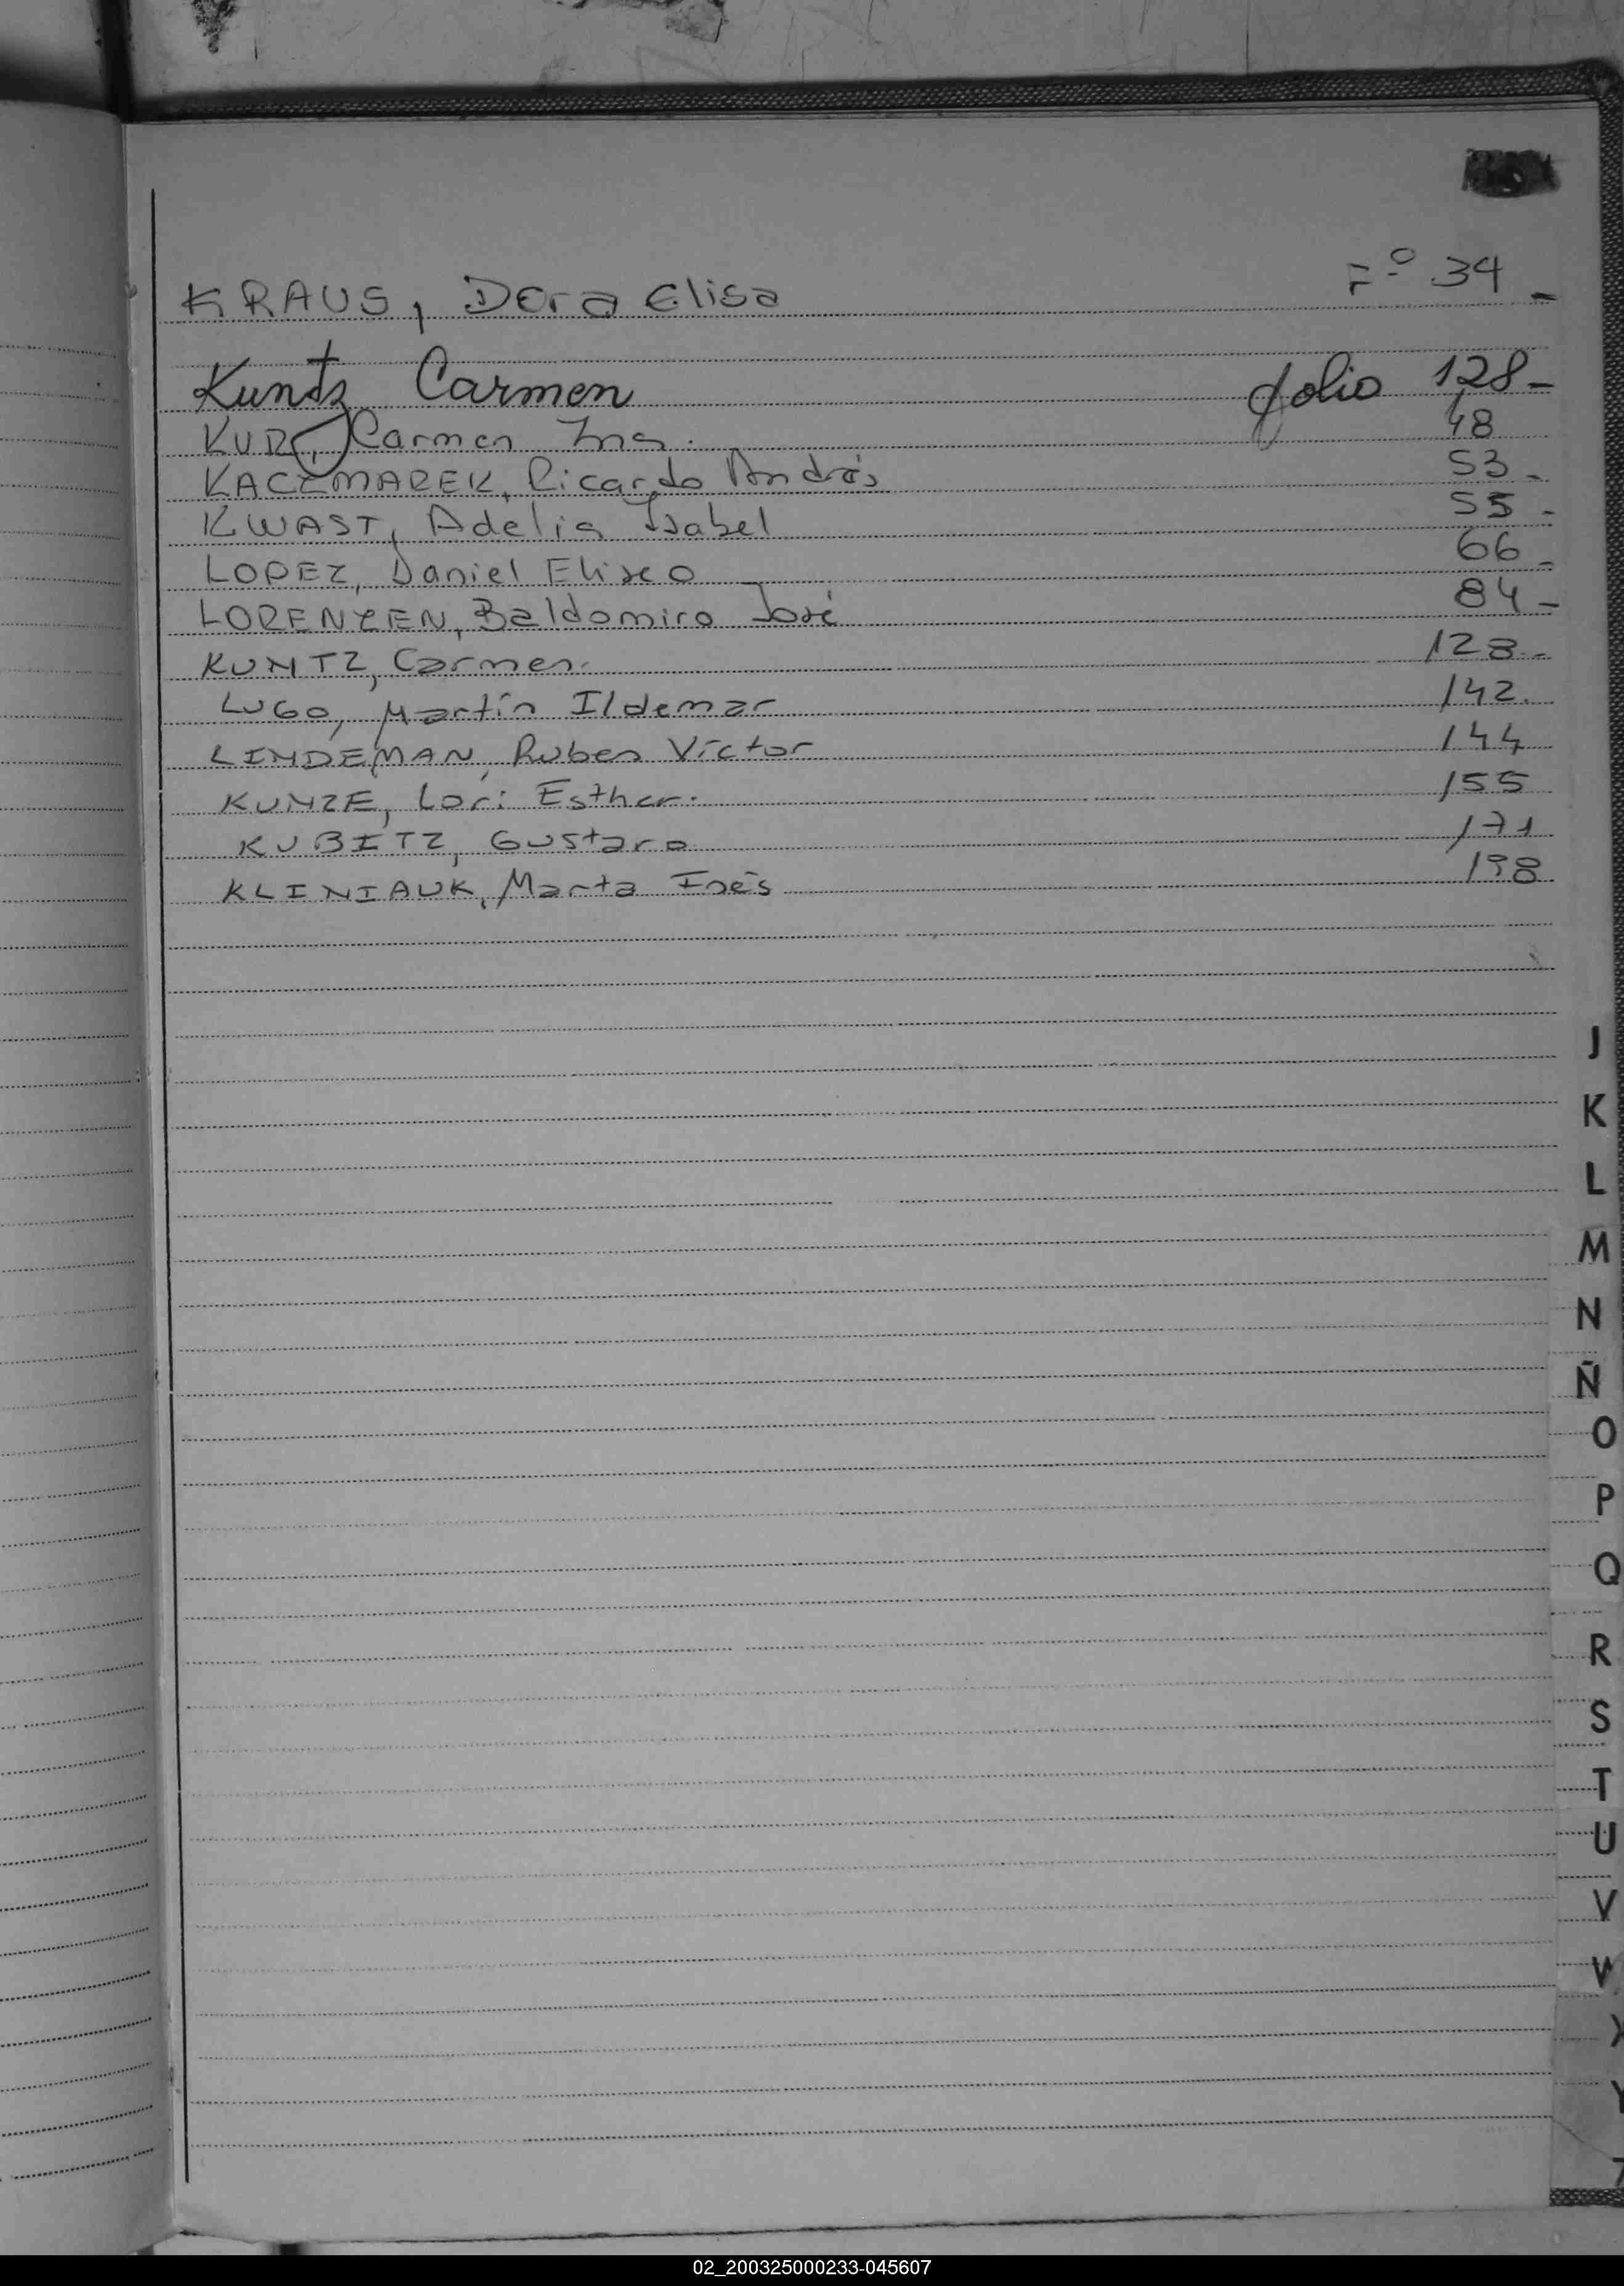 KRAUS, Dora Elisa Fº 34 -
Kuntz Carmen folio 128-
KUR, Carmen Ins. 48
KACZMAREK, Ricardo Andrés 53 -
KWAST, Adelia Isabel 55 -
LOPEZ, Daniel Eliseo 66 -
LORENZEN, Baldomiro José 84 -
KUNTZ, Carmen. 128.-
LUGO, Martín Ildemar 142.
LINDEMAN, Ruben Víctor 144
KUNZE, Lori Esther. 155
KUBITZ, Gustavo 171
KLINIAUK, Marta Inés 198
J
K
L
M
N
Ñ
O
P
Q
R
S
T
U
V
W
X
Y
02_200325000233-045607